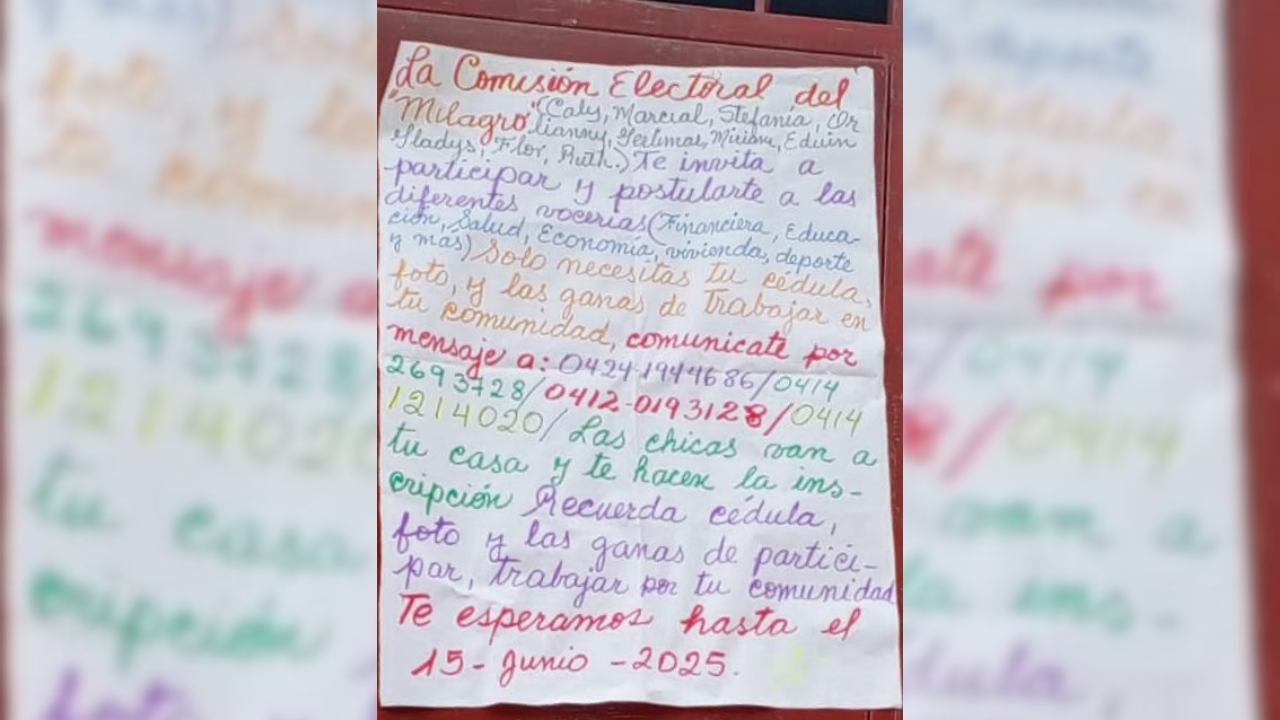 La Comisión Electoral del
"Milagro" (Caly, Marcial, Stefanía, Or
lianny, Yerlimar, Miriam, Eduin
Gladys, Flor, Ruth.) Te invita a
participar y postularte a las
diferentes vocerías (Financiera, Educa-
ción, Salud, Economía, vivienda, deporte
y más) Solo necesitas tu cédula,
foto, y las ganas de trabajar en
tu comunidad, comunicate por
mensaje a: 0424-1944686/0414
2693728/0412-0193128/0414
1214020/ Las chicas van a
tu casa y te hacen la ins-
cripción Recuerda cédula,
foto y las ganas de partici-
par, trabajar por tu comunidad
Te esperamos hasta el
15-Junio-2025.